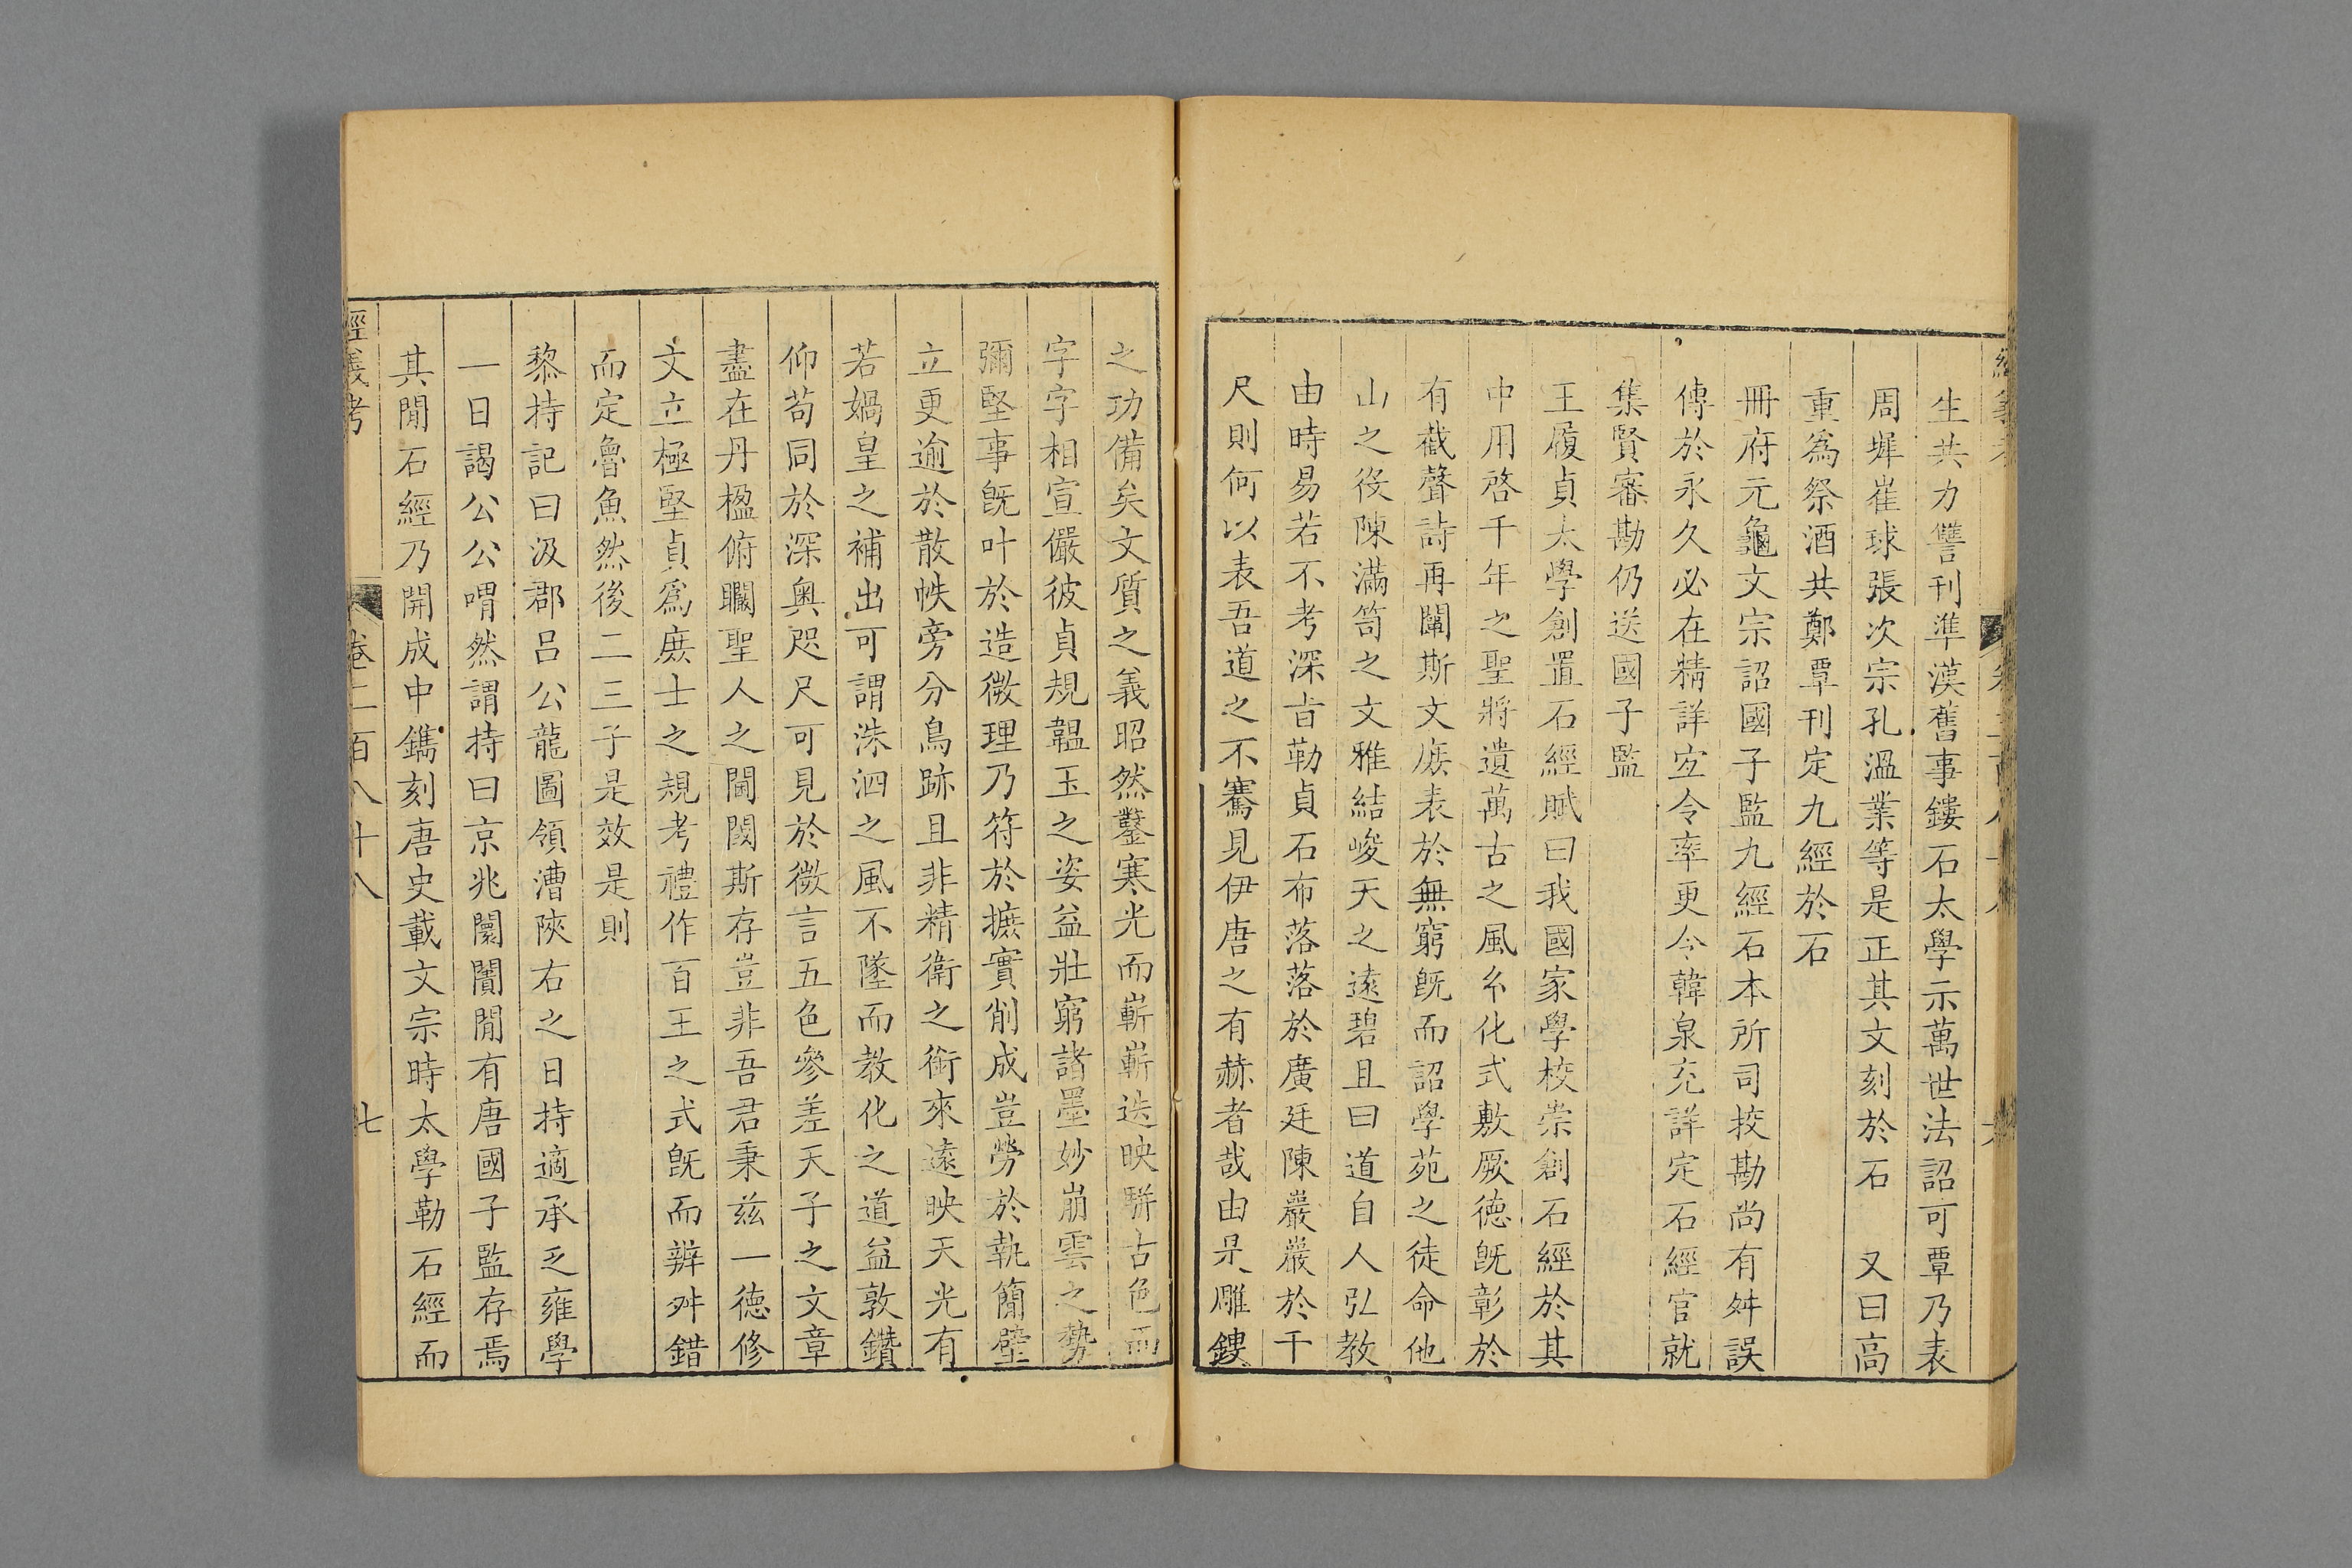 生共力讐刊準漢舊事鏤石太學示萬世法詔可覃乃表
周墀崔球張次宗孔溫業等是正其文刻於石　又曰高
重爲祭酒共鄭覃刊定九經於石
冊府元龜文宗詔國子監九經石本所司挍勘尚有舛誤
傳於永久必在精詳宐令率更令韓泉充詳定石經官就
集賢審勘仍送國子監
王履貞太學創置石經賦曰我國家學校崇創石經於其
中用啓千年之聖將遺萬古之風糸化式敷厥德旣彰於
有截聲詩再闡斯文庶表於無窮旣而詔學苑之徒命他
山之役陳滿笥之文雅結峻天之遠碧且曰道自人弘教
由時易若不考深㫖勒貞石布落落於廣廷陳巖巖於千
尺則何以表吾道之不騫見伊唐之有赫者哉由是雕鏤
之功備矣文質之義昭然鑿寒光而嶄嶄迭映駢古色而
字字相宣儼彼貞規韞玉之姿益壯窮諸墨妙崩雲之勢
彌堅事旣叶於造微理乃符於摭實削成豈勞於執簡壁
立更逾於散帙旁分鳥跡且非精衛之銜來遠映天光有
若媧皇之補出可謂洙泗之風不墜而教化之道益敦鑽
仰苟同於深奧咫尺可見於微言五色參差天子之文章
盡在丹楹俯矙聖人之閫閾斯存豈非吾君秉兹一德修
文立極堅貞爲庶士之規考禮作百王之式旣而辨舛錯
而定魯魚然後二三子是效是則
黎持記曰汲郡呂公龍圖領漕陝右之日持適承乏雍學
一日謁公公喟然謂持曰京兆闤闠閒有唐國子監存焉
其閒石經乃開成中鐫刻唐史載文宗時太學勒石經而
經義考
卷二百八十八
七